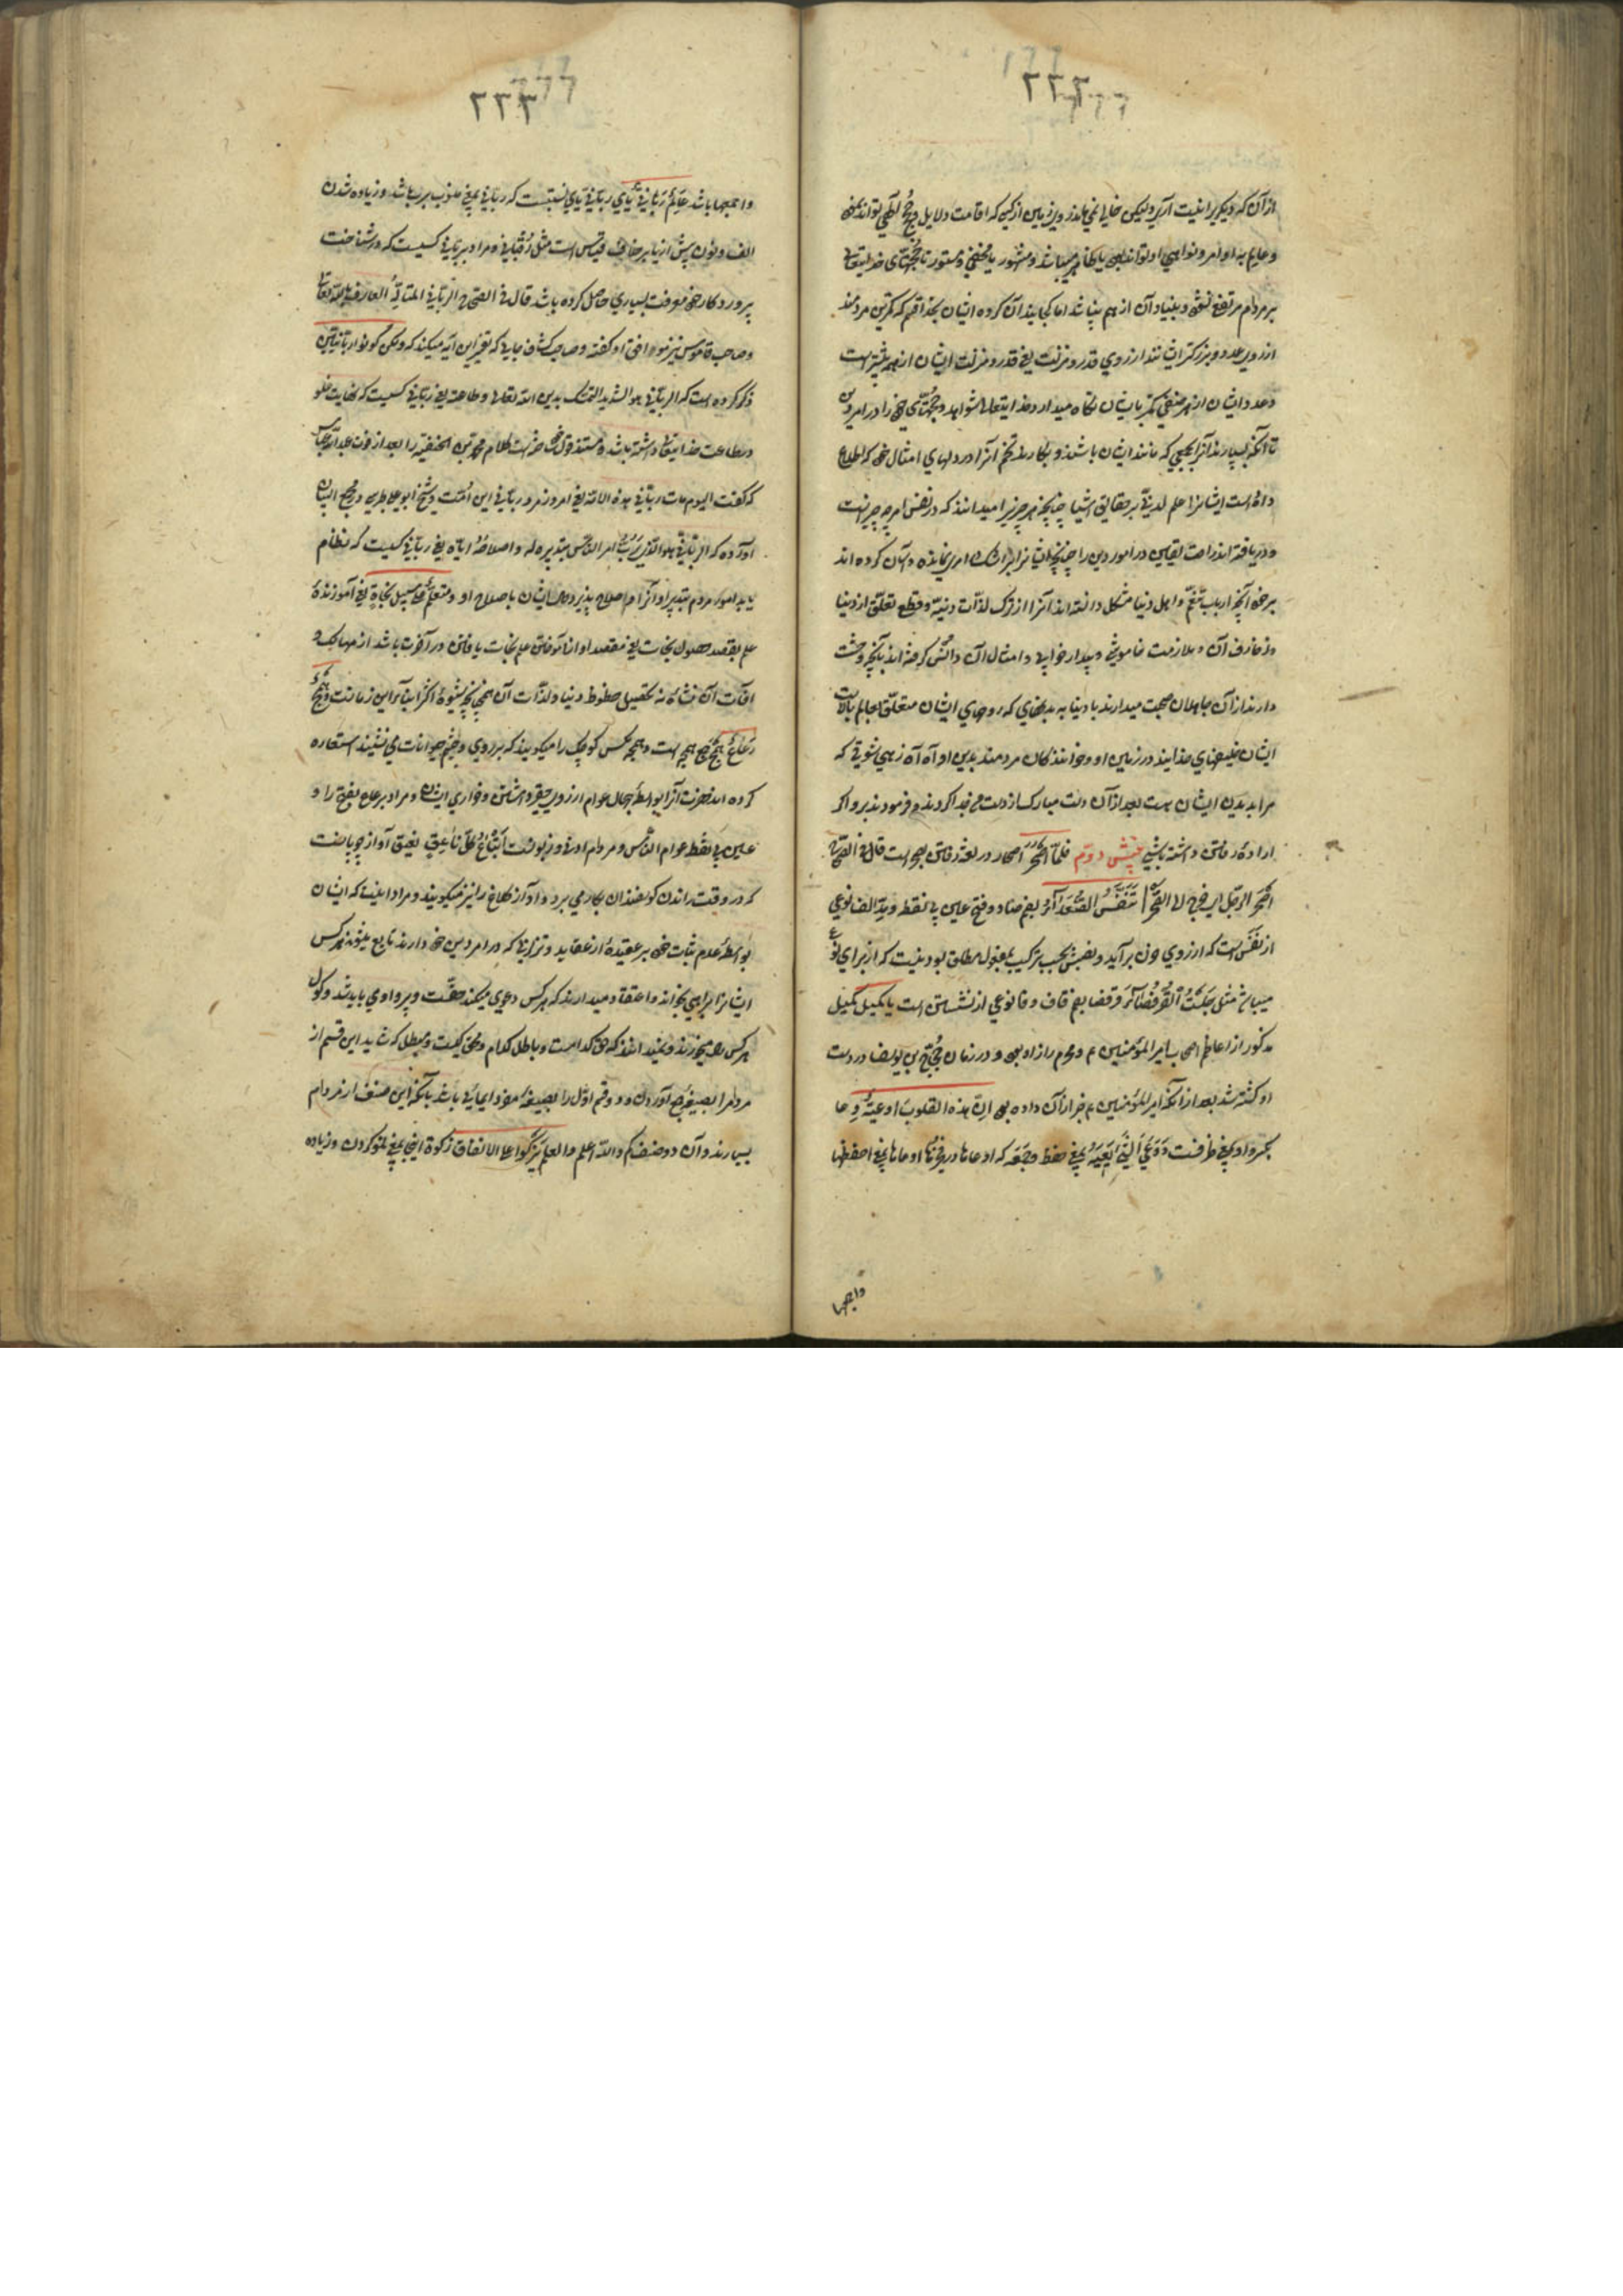 ۲۲۲
از آن که دیگر را نیست آری ولیکن خالی نمی ماند زمین از کسی که اقامت دلایل و حجج الهی تواند نمود
و عالم به اوامر و نواهی او تواند بود یا ظاهر میباشد و مشهور یا مخفی و مستور تا حجتهای خدایتعالی
بر مردم مرتفع نشود و بنیاد آن از هم نپاشد اما کجایند آن کروه ایشان بخدا قسم که کمترین مردمند
از روی عدد و بزرگتر ایشانند از روی قدر و منزلت یعنی قدر و منزلت ایشان از همه بیشتر است
و عدد ایشان از هر صنفی کمتر بایشان نگاه میدارد خدایتعالی شواهد و حجتهای خود را در امر دین
تا آنکه بسپارند آنرا بجمعی که مانند ایشان باشند و بکارند تخم آنرا در دلهای امثال خود که اطلاع
داده است ایشانرا علم لدنی بر حقایق اشیا چنانچه هر چیز را میدانند که در نفس امر چه چیز است
و دریافته اند راحت یقین در امور دین را چنانچه ایشانرا شک در امری نمانده و آسان کرده اند
بر خود آنچه ارباب تنعم و اهل دنیا مشکل دانسته اند آنرا از ترک لذات دنیه و قطع تعلق از دنیا
و زخارف آن و ملازمت خاموشی و بیدار خوابی و امثال آن و انس گرفته اند بآنچه وحشت
دارند از آن جاهلان صحبت میدارند با دنیا به بدنهای که روحهای ایشان متعلق بعالم بالاست
ایشان خلیفهای خدایند در زمین او و خوانندگان مردمند بدین او آه آه زهی شوقی که
مرا بدیدن ایشان هست بعد از آن دست مبارک از دست من جدا کردند و فرمودند برو اگر
اراده رفتن داشته باشی بخش دوم فلما اصحر اصحار در لغت رفتن بصحراست قال فی الصحاح
اصحر الرجل ای خرج الی الصحراء تنفس الصعداء بضم صاد و فتح عین بی نقطه و مد الف نوعی
از نفس است که از روی حزن برآید و نصبش بحسب ترکیب مفعول مطلق بودنست که از برای نوع
میباشد مثل جلست القرفصاء قرفصا بضم قاف و فا نوعی از نشستن است یا کمیل کمیل
مذکور از اعاظم اصحاب امیر المؤمنین ع و محرم راز او بود و در زمان حجاج بن یوسف در دست
او کشته شد بعد از آنکه امیر المؤمنین ع خبر از آن داده بود ان هذه القلوب اوعیة وعا
بکسر واو بمعنی ظرفست و وعی الشئ یعیه بمعنی حفظ و جمعه که اوعاها در فخیرها اوعاها بمعنی احفظها
واجمعها
۲۲۳
واجمعها باشد عالم ربانی یای ربانی یای نسبتست که ربانی بمعنی منسوب برب باشد و زیاده شدن
الف و نون پیش از یا بر خلاف قیاس است مثل رقبانی و مراد بربانی کسیست که در شناخت
پروردگار خود معرفت بسیاری حاصل کرده باشد قال فی الصحاح الربانی المتاله العارف بالله تعالی
و صاحب قاموس نیز موافق او گفته و صاحب کشاف جایی که تفسیر این آیه میکند که ولکن کونوا ربانیین
ذکر کرده است که الربانی هو الشدید التمسک بدین الله تعالی و طاعته یعنی ربانی کسیست که نهایت غلو
در طاعت خدایتعالی داشته باشد و مستند قول خود ساخته است کلام محمد بن الحنفیه را بعد از فوت عبدالله عباس
که گفت الیوم مات ربانی هذه الامة یعنی امروز مرد ربانی این امت و شیخ ابوعلی طبرسی در مجمع البیان
آورده که الربانی هو الذی یرب امر الناس بتدبیره له و اصلاحه ایاه یعنی ربانی کسیست که نظام
یابد امور مردم بتدبیر او و آنرا اصلاح پذیرد حال ایشان باصلاح او و متعلم علی سبیل نجاة یعنی آموزنده
علم بقصد حصول نجات یعنی مقصد او از آموختن علم نجات یافتن در آخرت باشد از مهالک و
آفات آن نشاه نه تحصیل حظوظ دنیا و لذات آن همچنانچه شیوه اکثر ابنای این زمانست و همج
رعاع همج جمع همجه است و همجه مکس کوچک را میگویند که بر روی و چشم حیوانات می نشیند استعاره
کرده اند حضرت آنرا بواسطه جهال عوام از روی حقیر داشتن و خواری ایشان و مراد برعاع بفتح را و
عین بی نقطه عوام الناس و مردم ادنی و زبونست اتباع کل ناعق نعیق آواز چوپانست
که در وقت راندن گوسفندان بکار می برد و آواز کلاغ را نیز میگویند و مراد اینست که ایشان
بواسطه عدم ثبات خود بر عقیده از عقاید و تزلزلی که در امر دین خود دارند تابع میشوند هر کس
ایشانرا براهی بخواند و اعتقاد میدارند که هر کس دعوی میکند حقست و پیرو او می باید شد و گول
هر کس میخورند و نمیدانند که حق کدامست و باطل کدام و محق کیست و مبطل که شاید این قسم از
مردم را بصیغه جمع آوردن و دو قسم اول را بصیغه مفرد ایمائی باشد بآنکه این صنف از مردم
بسیارند و آن دو صنف کم والله اعلم والعلم یزکوا علی الانفاق زکوة اینجا بمعنی نمو کردن و زیاده